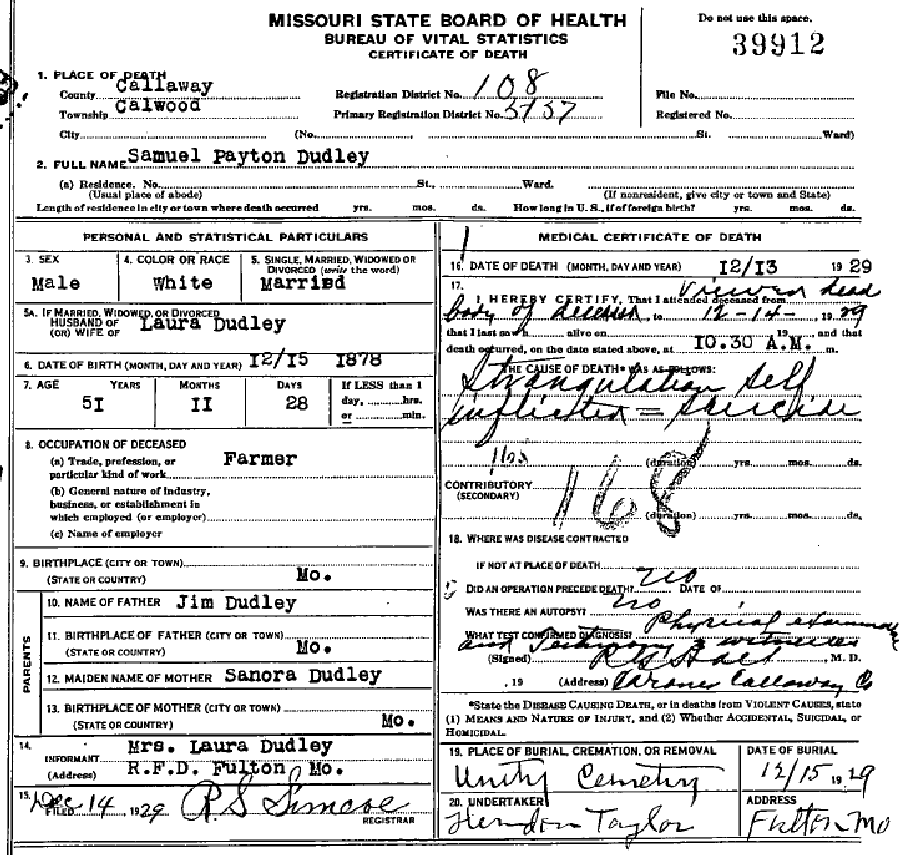 MISSOURI STATE BOARD OF HEALTH
BUREAU OF VITAL STATISTICS
CERTIFICATE OF DEATH
Do not use this space.
39912
1. PLACE OF DEATH
County Callaway Registration District No. 108 File No.
Township Calwood Primary Registration District No. 5137 Registered No.
City (No. St. Ward)
2. FULL NAME Samuel Payton Dudley
(a) Residence. No. St., Ward.
(Usual place of abode) (If nonresident, give city or town and State)
Length of residence in city or town where death occurred yrs. mos. ds. How long in U. S., if of foreign birth? yrs. mos. ds.
PERSONAL AND STATISTICAL PARTICULARS
3. SEX Male
4. COLOR OR RACE White
5. SINGLE, MARRIED, WIDOWED OR DIVORCED (write the word) Married
5A. IF MARRIED, WIDOWED, OR DIVORCED
HUSBAND OF Laura Dudley
(OR) WIFE OF
6. DATE OF BIRTH (MONTH, DAY AND YEAR) I2/I5 I878
7. AGE YEARS MONTHS DAYS If LESS than 1
5I II 28 day, hrs.
or min.
8. OCCUPATION OF DECEASED
(a) Trade, profession, or
particular kind of work Farmer
(b) General nature of industry,
business, or establishment in
which employed (or employer)
(c) Name of employer
9. BIRTHPLACE (CITY OR TOWN)
(STATE OR COUNTRY) Mo.
PARENTS
10. NAME OF FATHER Jim Dudley
11. BIRTHPLACE OF FATHER (CITY OR TOWN)
(STATE OR COUNTRY) Mo.
12. MAIDEN NAME OF MOTHER Sanora Dudley
13. BIRTHPLACE OF MOTHER (CITY OR TOWN)
(STATE OR COUNTRY) Mo.
14.
INFORMANT Mrs. Laura Dudley
(Address) R.F.D. Fulton, Mo.
15.
FILED Dec 14 1929 R S Simcoe
REGISTRAR
MEDICAL CERTIFICATE OF DEATH
16. DATE OF DEATH (MONTH, DAY AND YEAR) I2/I3 1929
17. Viewed dead
I HEREBY CERTIFY, That I attended deceased from
body of deceased, to 12-14- 1929
that I last saw h alive on 19 and that
death occurred, on the date stated above, at I0.30 A.M. m.
THE CAUSE OF DEATH* WAS AS FOLLOWS:
Strangulation self
inflicted = Suicide
(duration) yrs. mos. ds.
CONTRIBUTORY 168
(SECONDARY)
(duration) yrs. mos. ds.
18. WHERE WAS DISEASE CONTRACTED
IF NOT AT PLACE OF DEATH
DID AN OPERATION PRECEDE DEATH? no DATE OF
WAS THERE AN AUTOPSY? no
WHAT TEST CONFIRMED DIAGNOSIS? Physical
and Testimony
(Signed) , M. D.
, 19 (Address) Coroner Callaway Co
*State the DISEASE CAUSING DEATH, or in deaths from VIOLENT CAUSES, state
(1) MEANS AND NATURE OF INJURY, and (2) Whether ACCIDENTAL, SUICIDAL, or
HOMICIDAL.
19. PLACE OF BURIAL, CREMATION, OR REMOVAL DATE OF BURIAL
Unity Cemetery 12/15 1929
20. UNDERTAKER ADDRESS
Herndon Taylor Fulton Mo